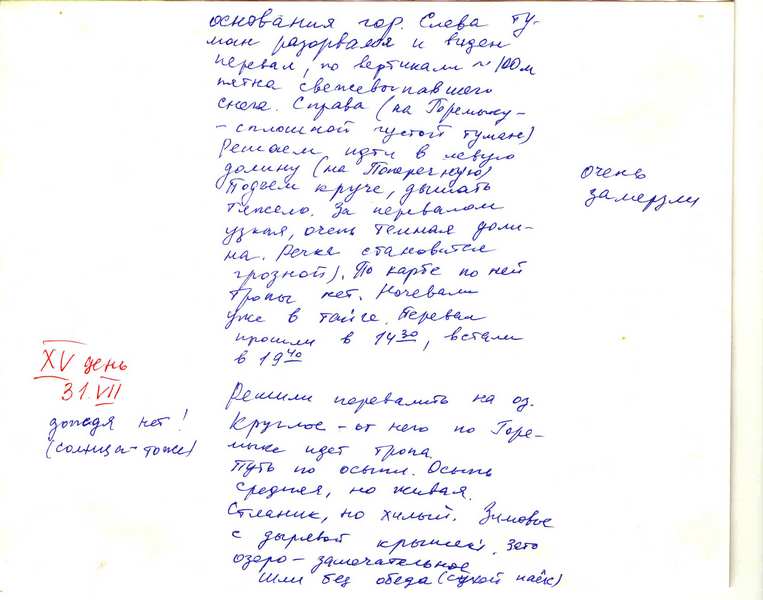 основания гор. Слева ту-
ман разорвался и виден
перевал, по вертикали ~ 100 м
пятна свежевыпавшего
снега. Справа (на Горемыку-
- сплошной густой туман)
Решаем идти в левую
долину (на Поперечную)
Подъем круче, дышать
тяжело. За перевалом
узкая, очень темная доли-
на. Речка становится
грозной). По карте по ней
тропы нет. Ночевали
уже в тайге. Перевал
прошли в 14 30, встали
в 19 40
очень
замерзли
XV день
31.VII
дождя нет!
(солнца-тоже)
Решили перевалить на оз.
Круглое - от него по Горе-
мыке идет тропа.
Путь по осыпи. Осыпь
средняя, но живая.
Стланик, но хилый. Зимовье
с дырявой крышей. Зато
озеро - замечательное
Шли без обеда (сухой паёк)